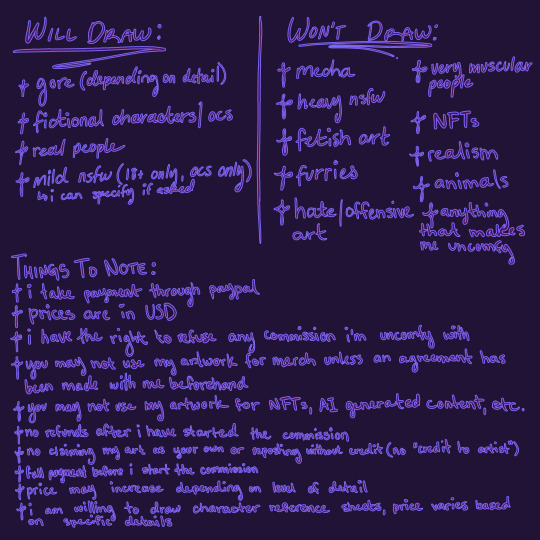 WILL DRAW:
+ gore (depending on detail)
+ fictional characters/ocs
+ real people
+ mild nsfw (18+ only, ocs only)
↳ i can specify if asked
WON'T DRAW:
+ mecha
+ heavy nsfw
+ fetish art
+ furries
+ hate/offensive
art
+ very muscular
people
+ NFTs
+ realism
+ animals
+ anything
that makes
me uncomfy
THINGS TO NOTE:
+ i take payment through paypal
+ prices are in USD
+ i have the right to refuse any commission i'm uncomfy with
+ you may not use my artwork for merch unless an agreement has
been made with me beforehand
+ you may not use my artwork for NFTs, AI generated content, etc.
+ no refunds after i have started the commission
+ no claiming my art as your own or reposting without credit (no "credit to artist")
+ full payment before i start the commission
+ price may increase depending on level of detail
+ i am willing to draw character reference sheets, price varies based
on specific details